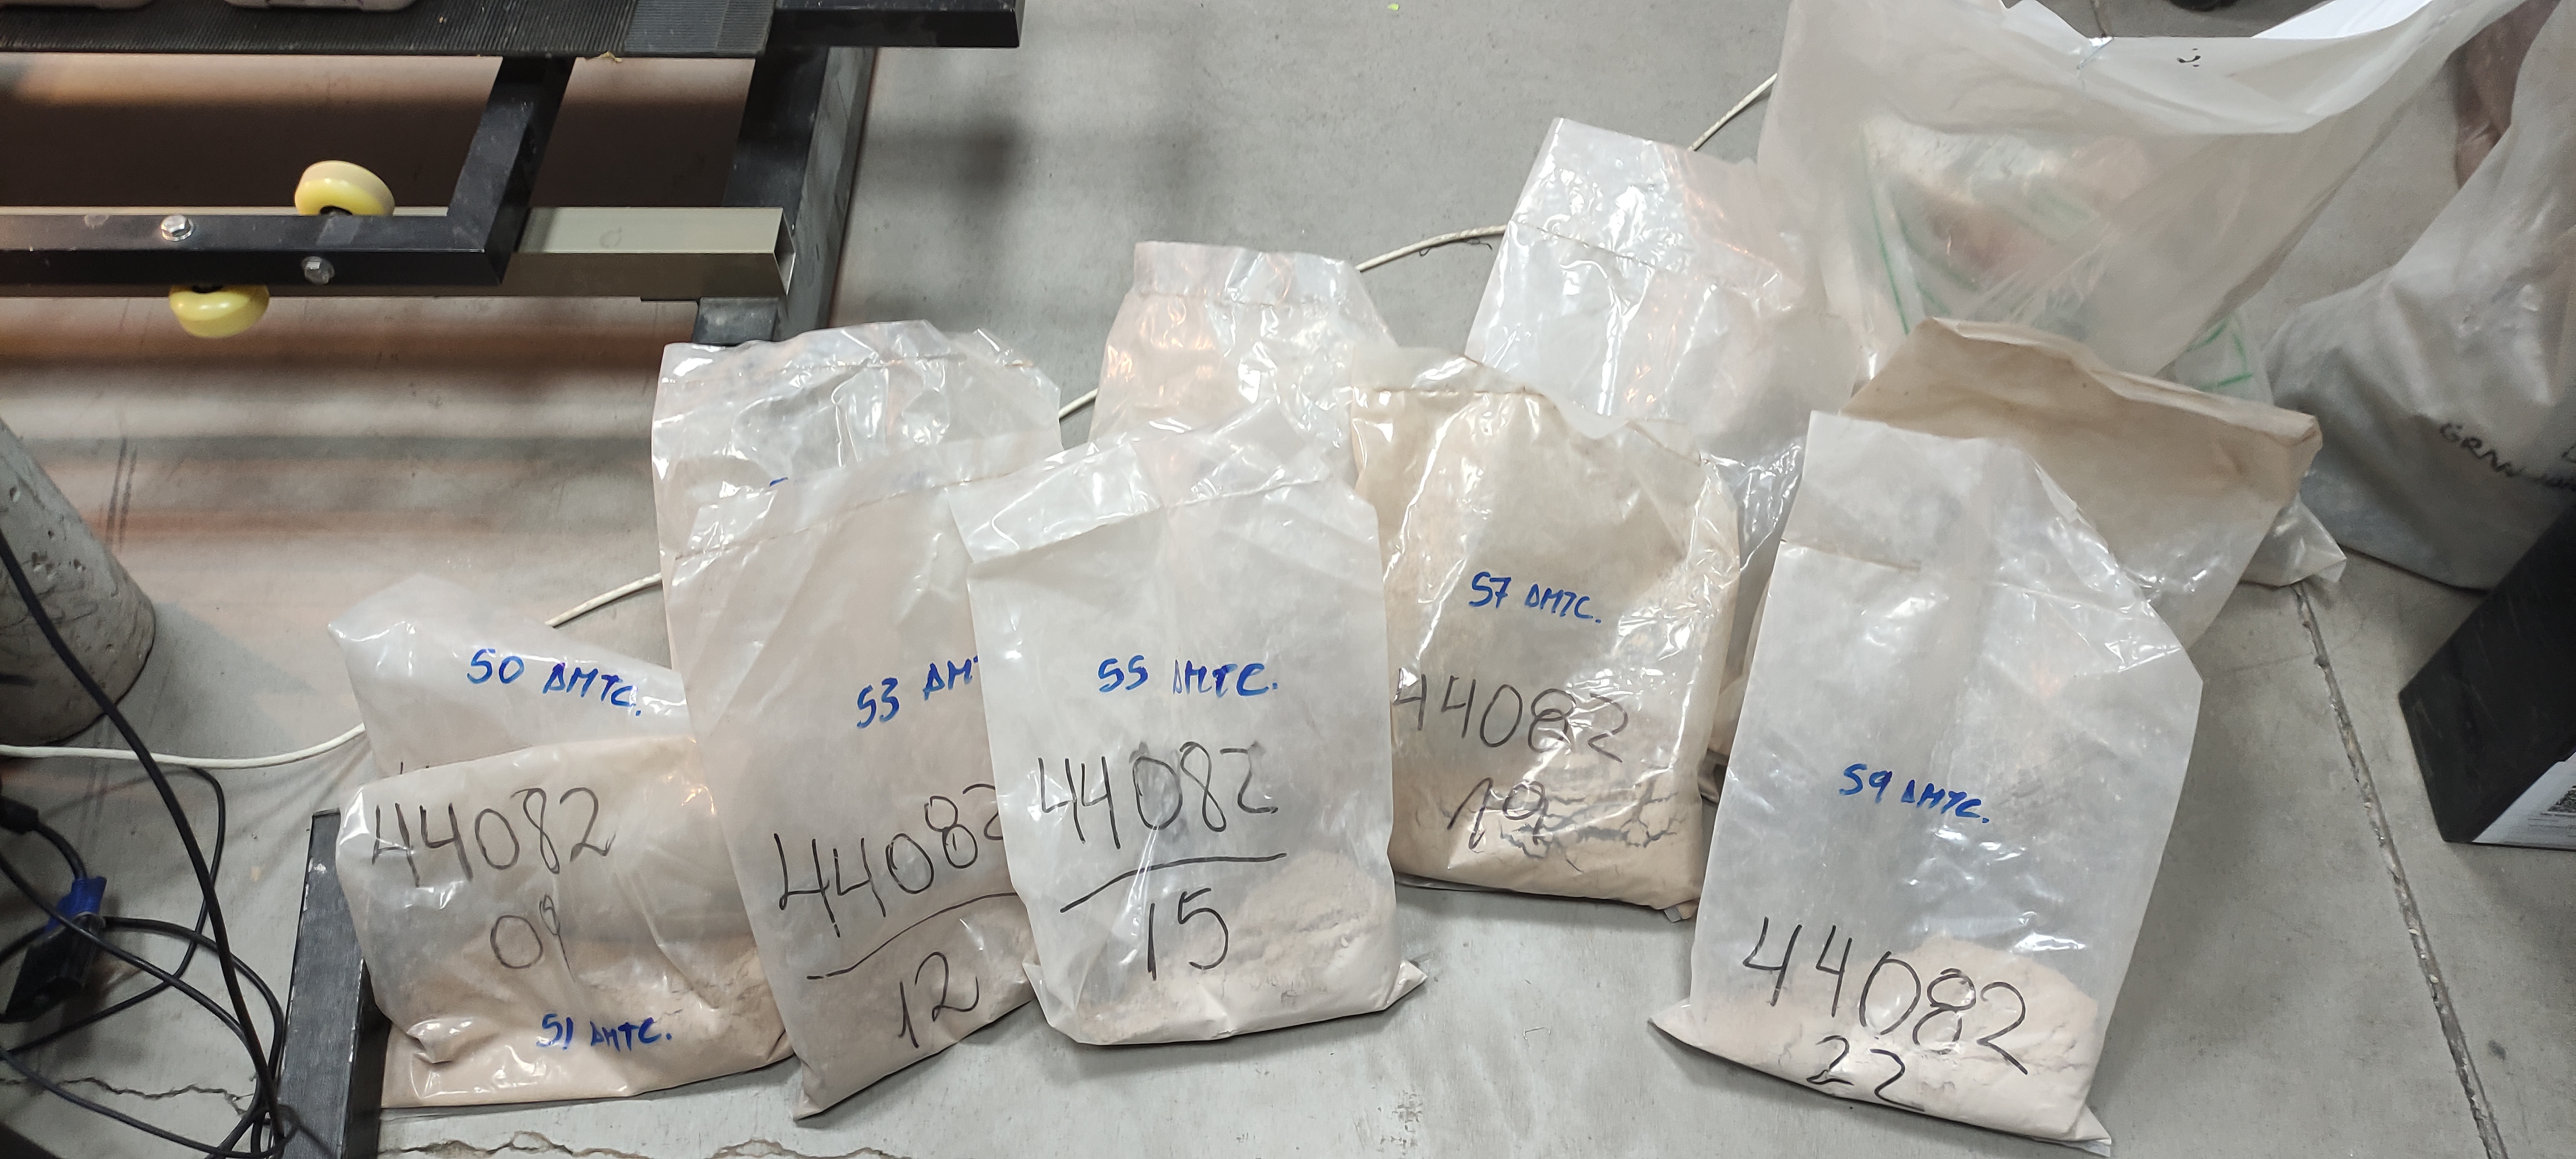 50 AMTC.
44082
09
51 AMTC.
53 AMT
44082
12
55 AMTC.
44082
15
57 AMTC.
44082
19
59 AMTC.
44082
22
GRAN